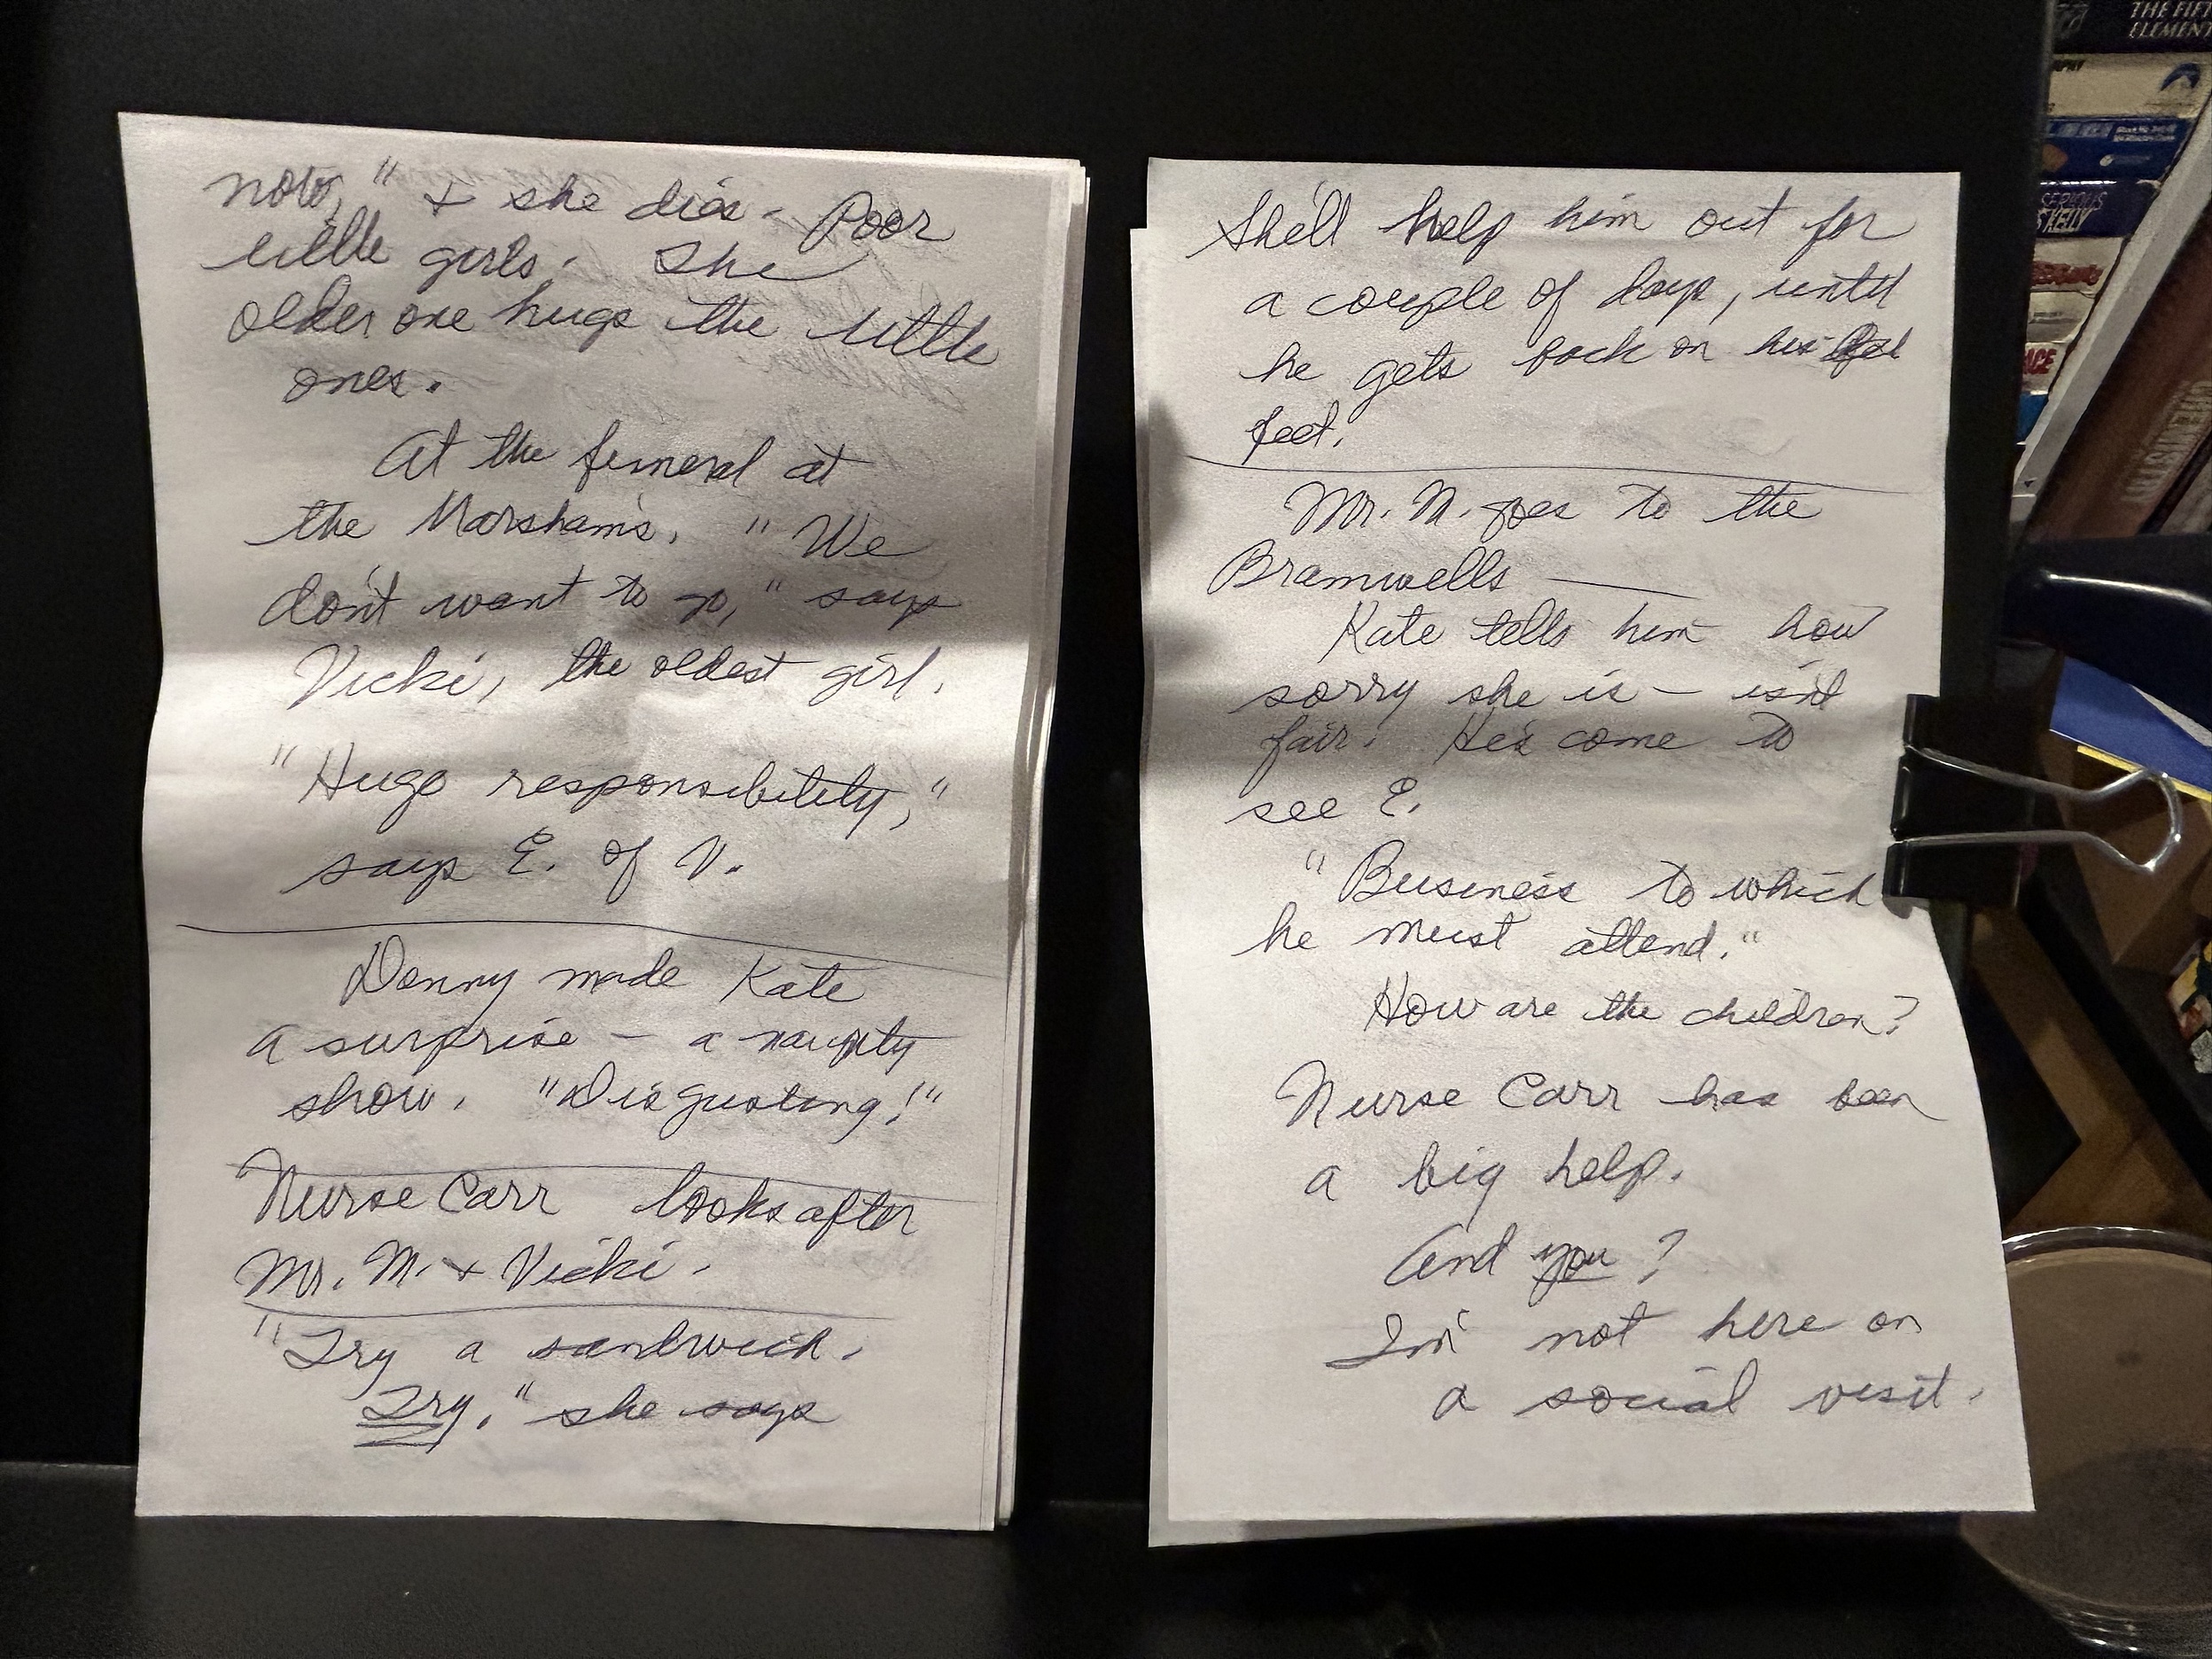 now," + she dies. Poor
little girls. The
older one hugs the little
ones.
At the funeral at
the Marsham's. "We
don't want to go," says
Vicki, the oldest girl.
"Huge responsibility,"
says E. of V.
Denny made Kate
a surprise – a naughty
show. "Disgusting!"
Nurse Carr looks after
Mr. M. + Vicki.
"Try a sandwich.
Try," she says
She'll help him out for
a couple of days, until
he gets back on his
feet.
Mr. M. goes to the
Bramwells —
Kate tells him how
sorry she is – isn't
fair. He's come to
see E.
"Business to which
he must attend."
How are the children?
Nurse Carr has been
a big help.
And you?
I'm not here on
a social visit.
THE FIFTH
ELEMENT